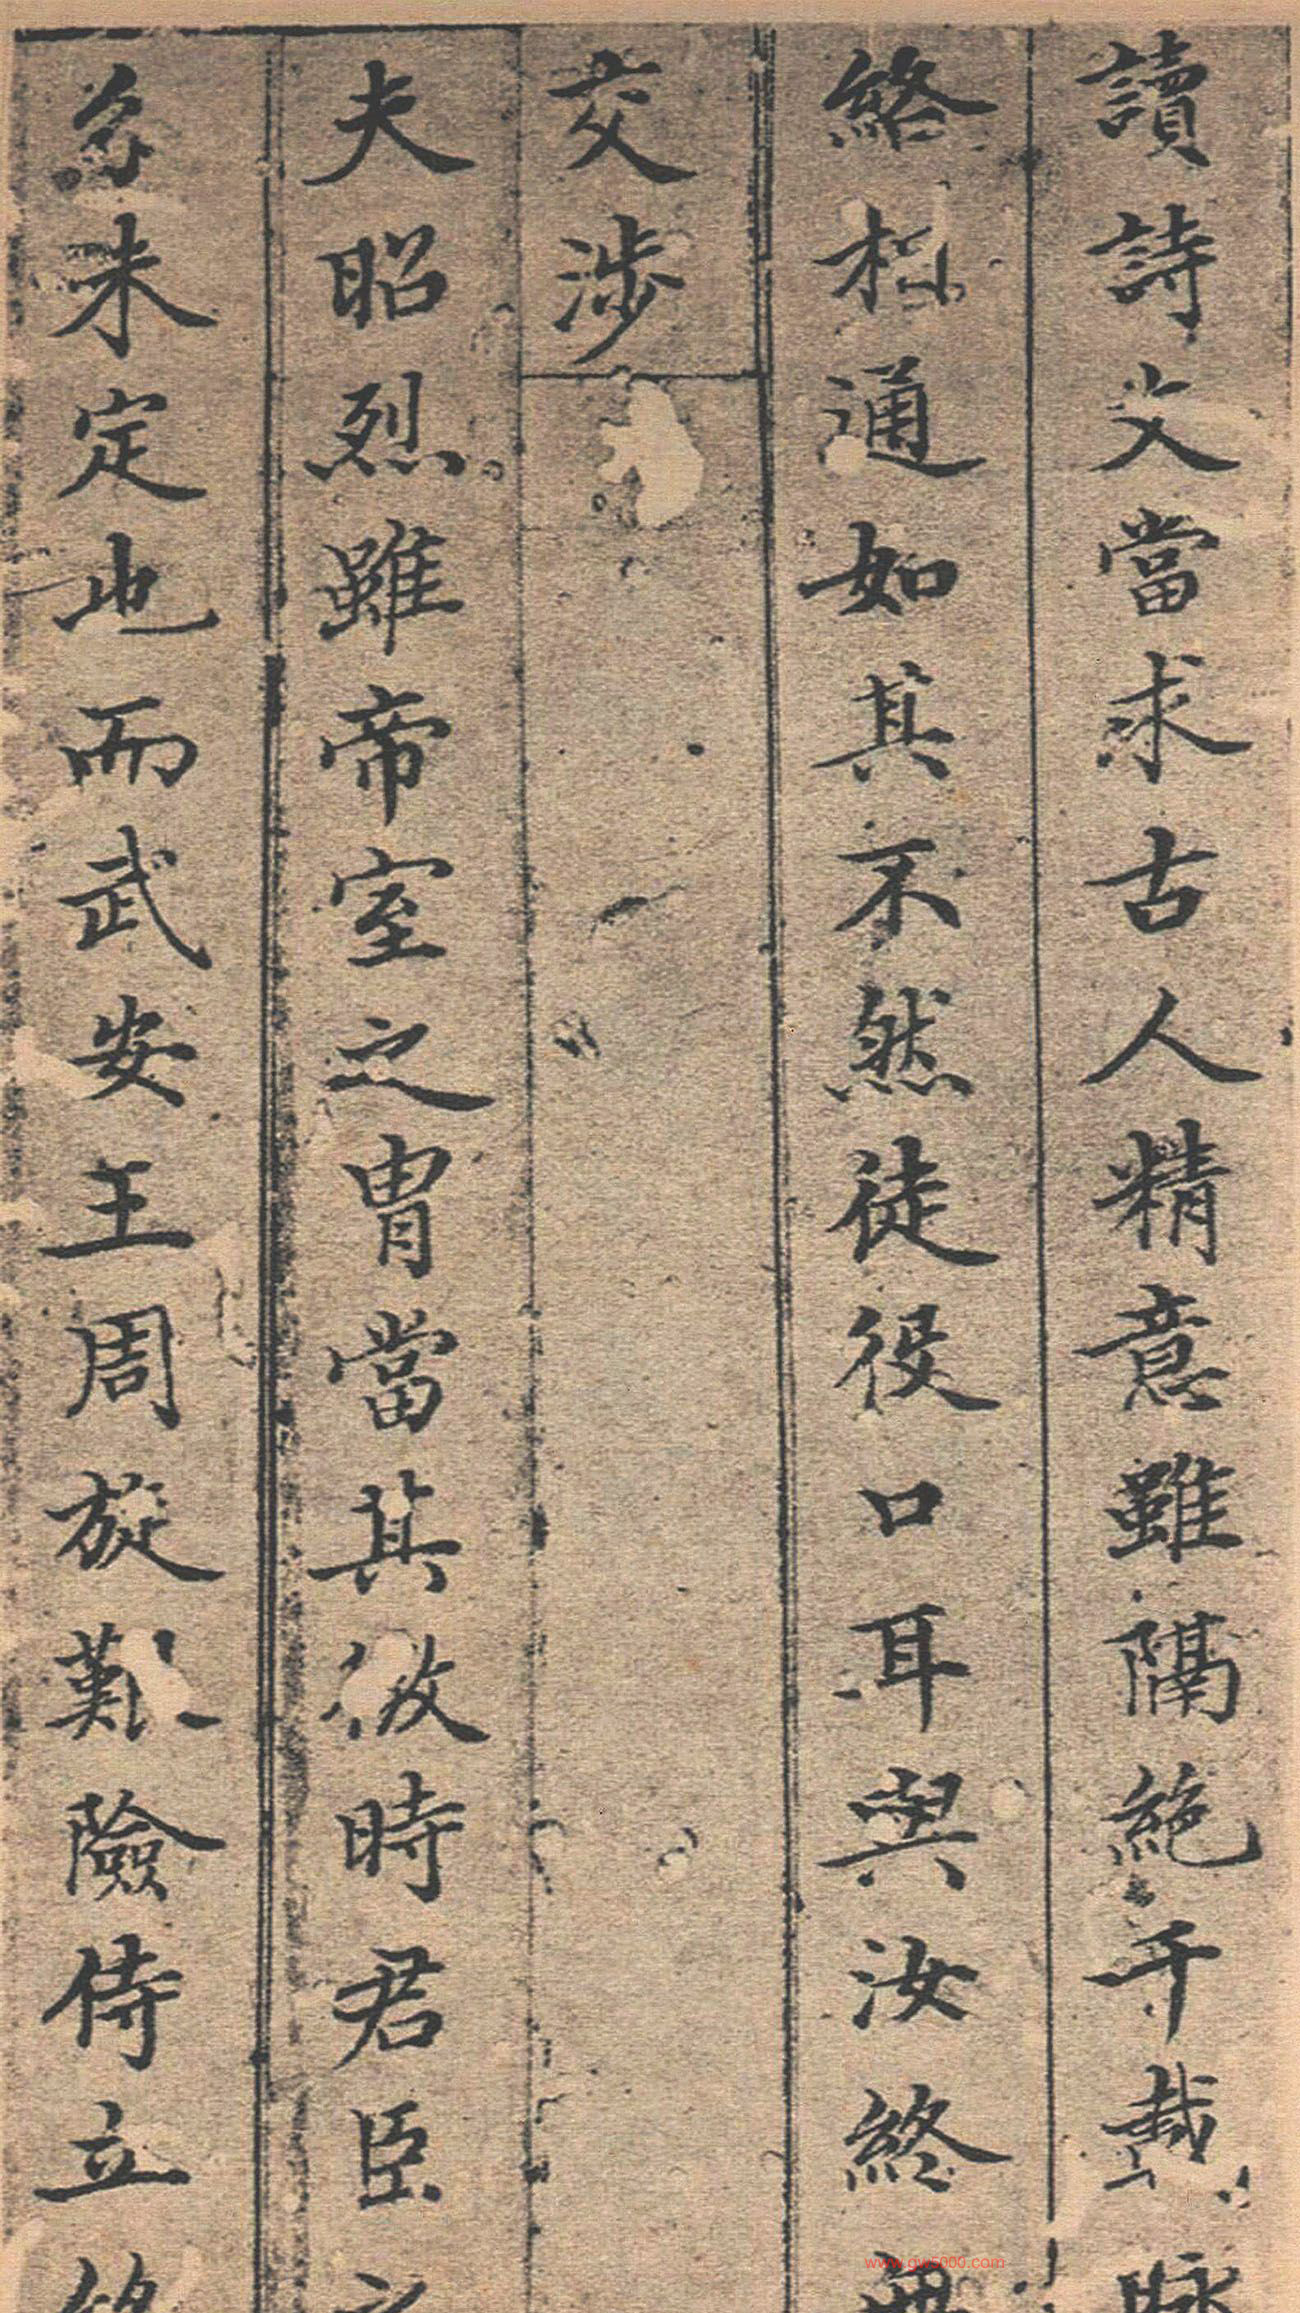 讀詩文當求古人精意雖隔絕千載脉
絡相通如其不然徒役口耳與汝終無
交涉
夫昭烈雖帝室之胄當其微時君臣之
名未定也而武安王周旋艱險侍立終
www.gw5000.com